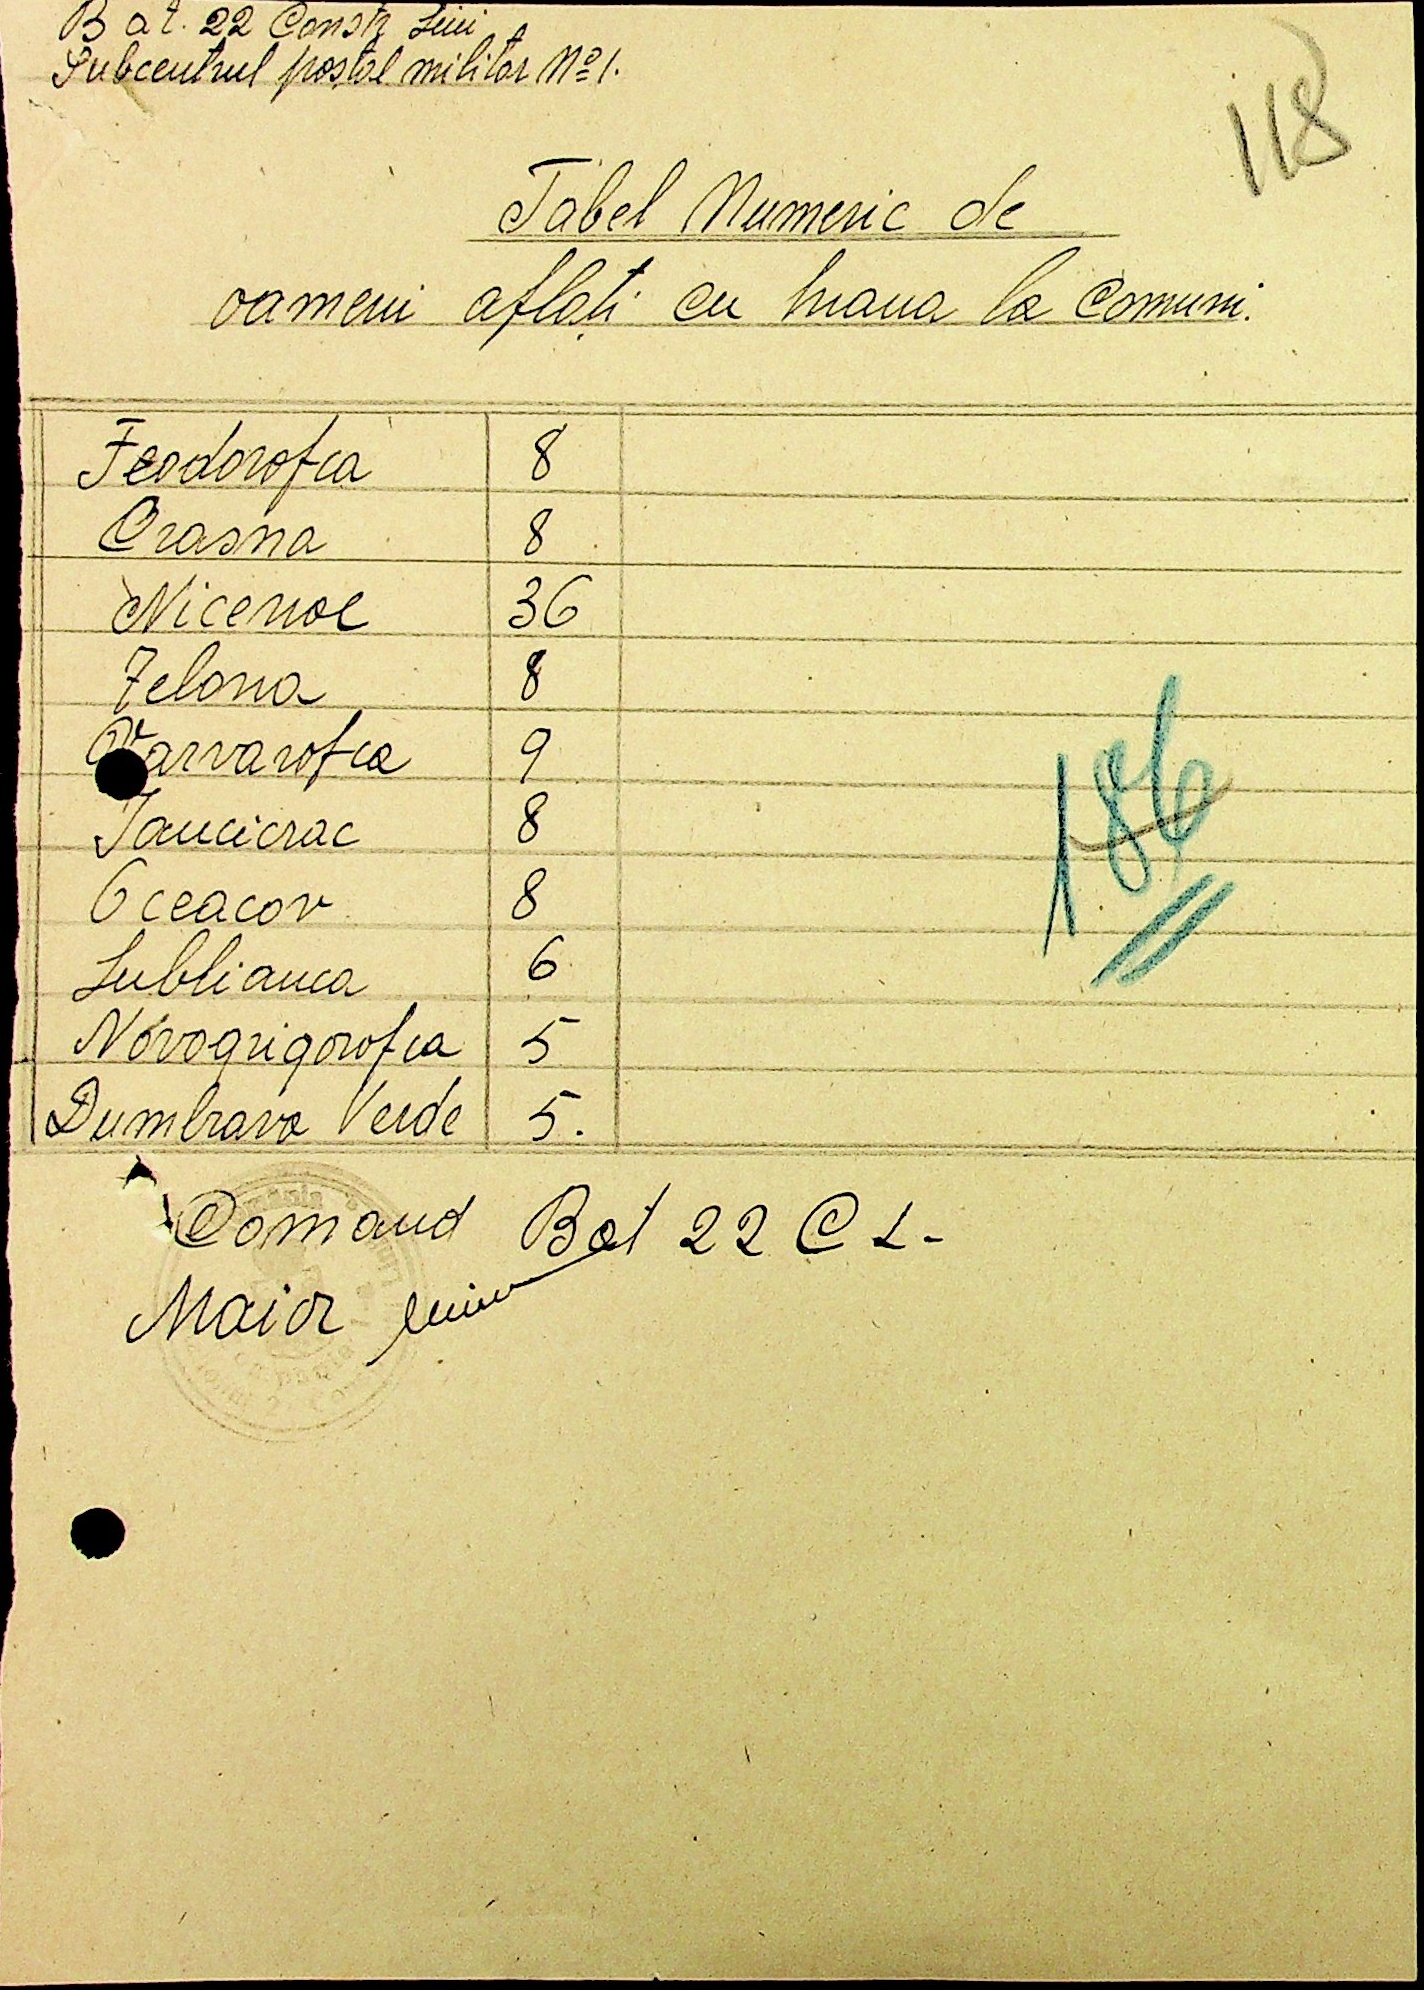 Bat. 22 Constr Linii
Subcentrul poștal militar No 1.
118
Tabel Numeric de
oameni aflați cu hrana la Comuni.
Feodorofca 8
Crasna 8
Nicenoe 36
Zelona 8
Varvarofca 9
Iancicrac 8
Oceacov 8
Lublianca 6
Novogrigorofca 5
Dumbrava Verde 5.
186
Comand Bat 22 C L-
Maior